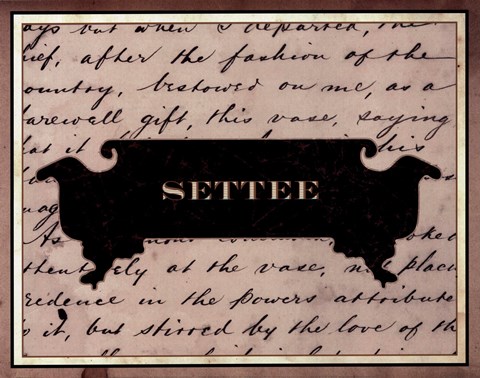 ays but when I departed, the
ief, after the fashion of the
ountry, bestowed on me, as a
arewell gift, this vase, saying
at it his
SETTEE
As common oked
thent ely at the vase, n place
redence in the powers attribute
o it, but stirred by the love of th